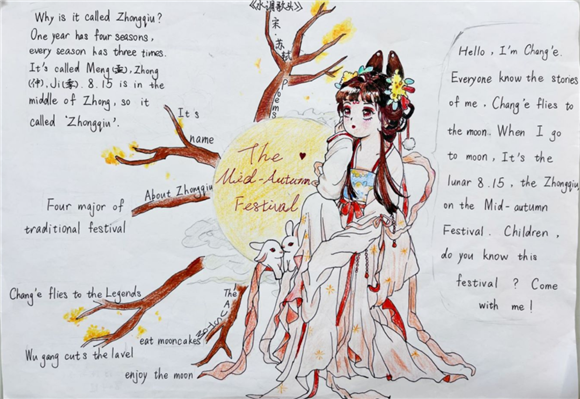 Why is it called Zhongqiu?
One year has four seasons,
every season has three times.
It's called Meng(孟), Zhong
(仲), Ji(季). 8.15 is in the
middle of Zhong, so it
called 'Zhongqiu'.
《水调歌头》
宋·苏轼
Poems
It's
name
About Zhongqiu
Four major of
traditional festival
The ♥
Mid-Autumn
Festival
Chang'e flies to the Legends
Wu gang cuts the lavel
The
eat mooncakes
enjoy the moon
Hello, I'm Chang'e.
Everyone know the stories
of me. Chang'e flies to
the moon. When I go
to moon, It's the
lunar 8.15. the Zhongqiu
on the Mid-autumn
Festival. Children,
do you know this
festival ? Come
with me!